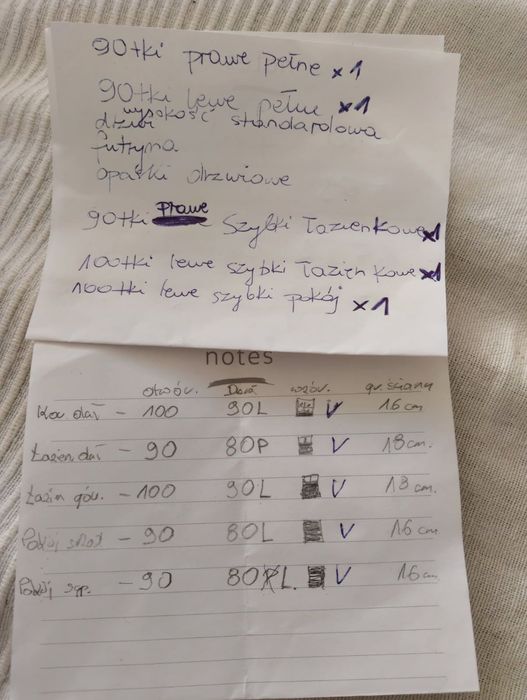 90tki prawe pełne x1
90tki lewe pełne x1
drzwi wysokość standardowa
futryna
opaski drzwiowe
90tki Prawe szybki łazienkowe x1
100tki lewe szybki łazienkowe x1
100tki lewe szybki pokój x1
notes
otwór. wzór. gr. ściany
dół – 100 90L V 16 cm
Łazien. dół – 90 80P V 18 cm.
Łazien gór. – 100 90L V 18 cm.
Pokój – 90 80L V 16 cm
Pokój – 90 80 L. V 16 cm